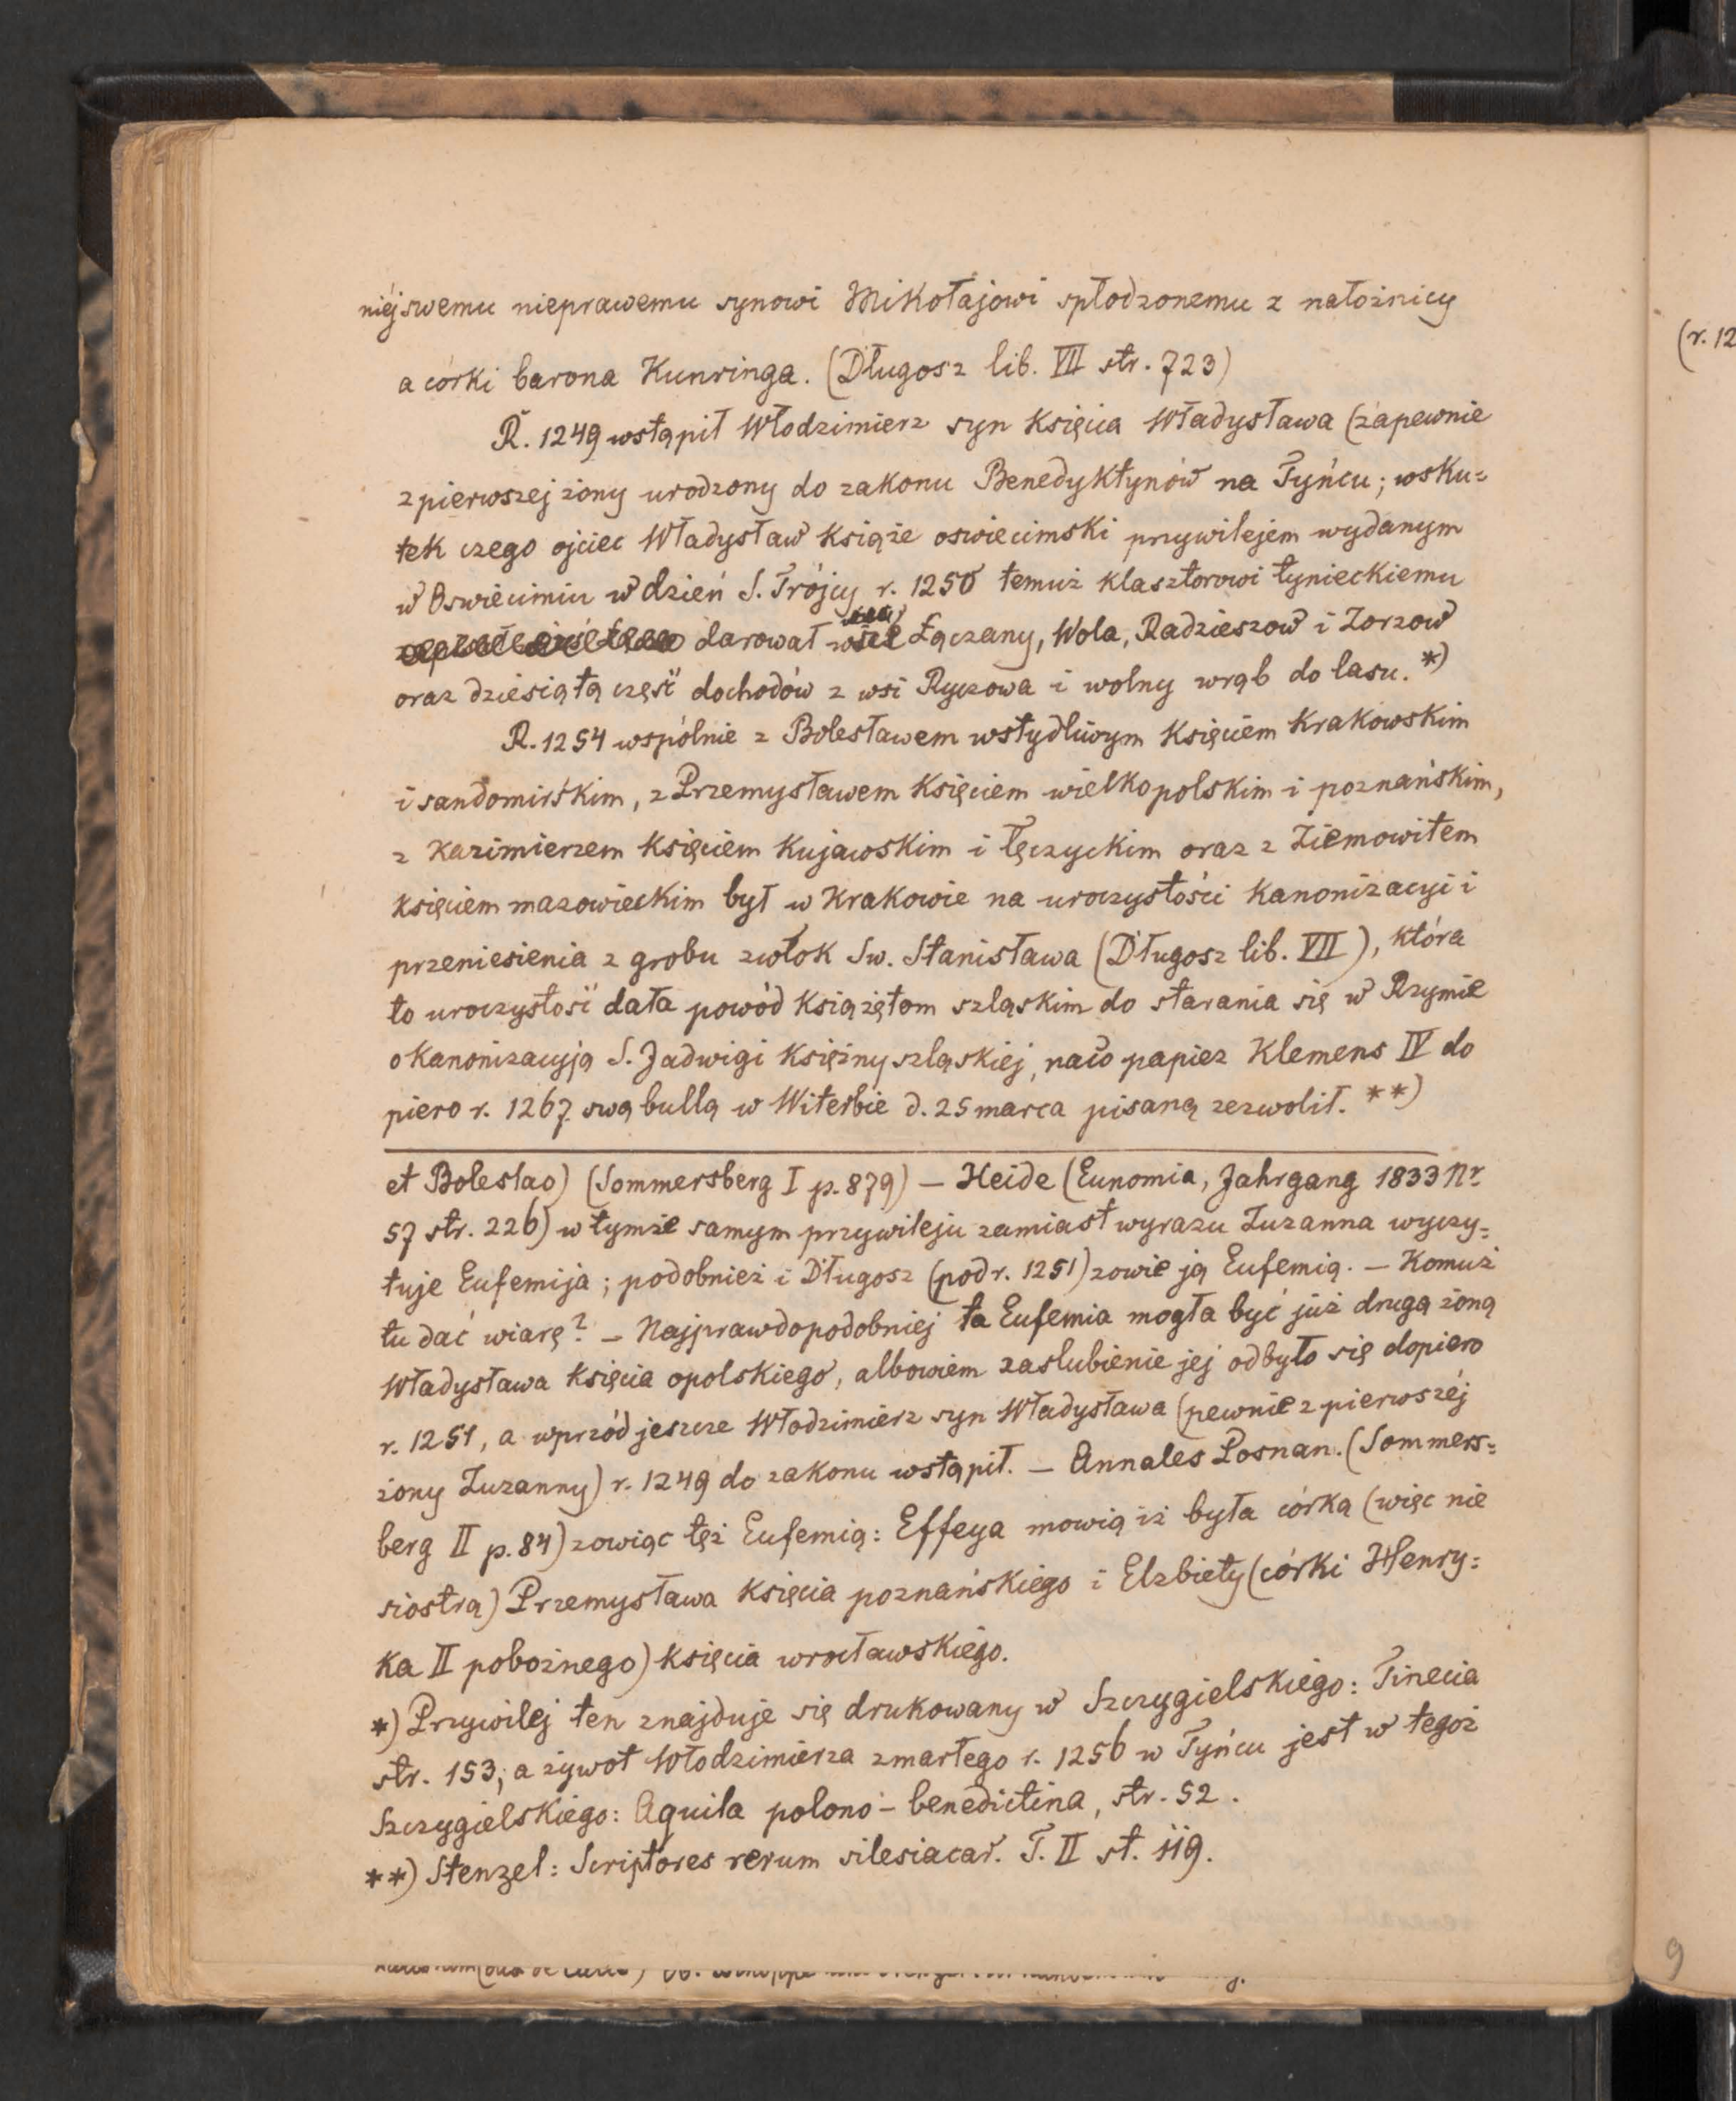 niéj swemu nieprawemu synowi Mikołajowi spłodzonemu z nałożnicy
a córki barona Kunringa. (Długosz lib. VII str. 723)
R. 1249 wstąpił Włodzimierz syn Księcia Władysława (zapewnie
z pierwszej żony urodzony do zakonu Benedyktynów na Tyńcu; wsku=
tek czego ojciec Władysław Książe oswiecimski przywilejem wydanym
w Oswiecimiu w dzień S. Trójcy r. 1250 temuż klasztorowi tynieckiemu
darował wsie Łączany, Wola, Radzieszow i Zorzow
oraz dziesiątą część dochodów z wsi Ryczowa i wolny wrąb do lasu. *)
R. 1254 wspólnie z Bolesławem wstydliwym Księciem Krakowskim
i sandomirskim, z Przemysławem Księciem wielkopolskim i poznańskim,
z Kazimierzem Księciem Kujawskim i łęczyckim oraz z Ziemowitem
księciem mazowieckim był w Krakowie na uroczystości Kanonizacyi i
przeniesienia z grobu zwłok Sw. Stanisława (Długosz lib. VII), która
to uroczystość dała powód Książętom szląskim do starania się w Rzymie
o Kanonizacyją S. Jadwigi Księżny szląskiej, na co papiez Klemens IV do
piero r. 1267 swą bullą w Witerbie d. 25 marca pisaną zezwolił. **)
et Boleslao) (Sommersberg I p. 879) — Heide (Eunomia, Jahrgang 1833 Nr
57 str. 226) w tymże samym przywileju zamiast wyrazu Zuzanna wyczy=
tuje Eufemija; podobnież i Długosz (pod r. 1251) zowie ją Eufemią. — Komuż
tu dać wiarę? — Najprawdopodobniej ta Eufemia mogła być już drugą żoną
Władysława Księcia opolskiego, albowiem zaslubienie jej odbyło się dopiero
r. 1251, a wprzód jeszcze Włodzimierz syn Władysława (pewnie z pierwszéj
żony Zuzanny) r. 1249 do zakonu wstąpił. — Annales Posnan. (Sommers=
berg II p. 84) zowiąc też Eufemią: Effeya mowią iż była córką (więc nie
siostrą) Przemysława Księcia poznańskiego i Elzbiety (córki Henry=
ka II pobożnego) księcia wrocławskiego.
*) Przywilej ten znajduje się drukowany w Szczygielskiego: Tinecia
str. 153; a żywot Włodzimierza zmarłego r. 1256 w Tyńcu jest w tegoż
Szczygielskiego: Aquila polono-benedictina, str. 52.
**) Stenzel: Scriptores rerum silesiacar. T. II st. 119.
(r. 12
9